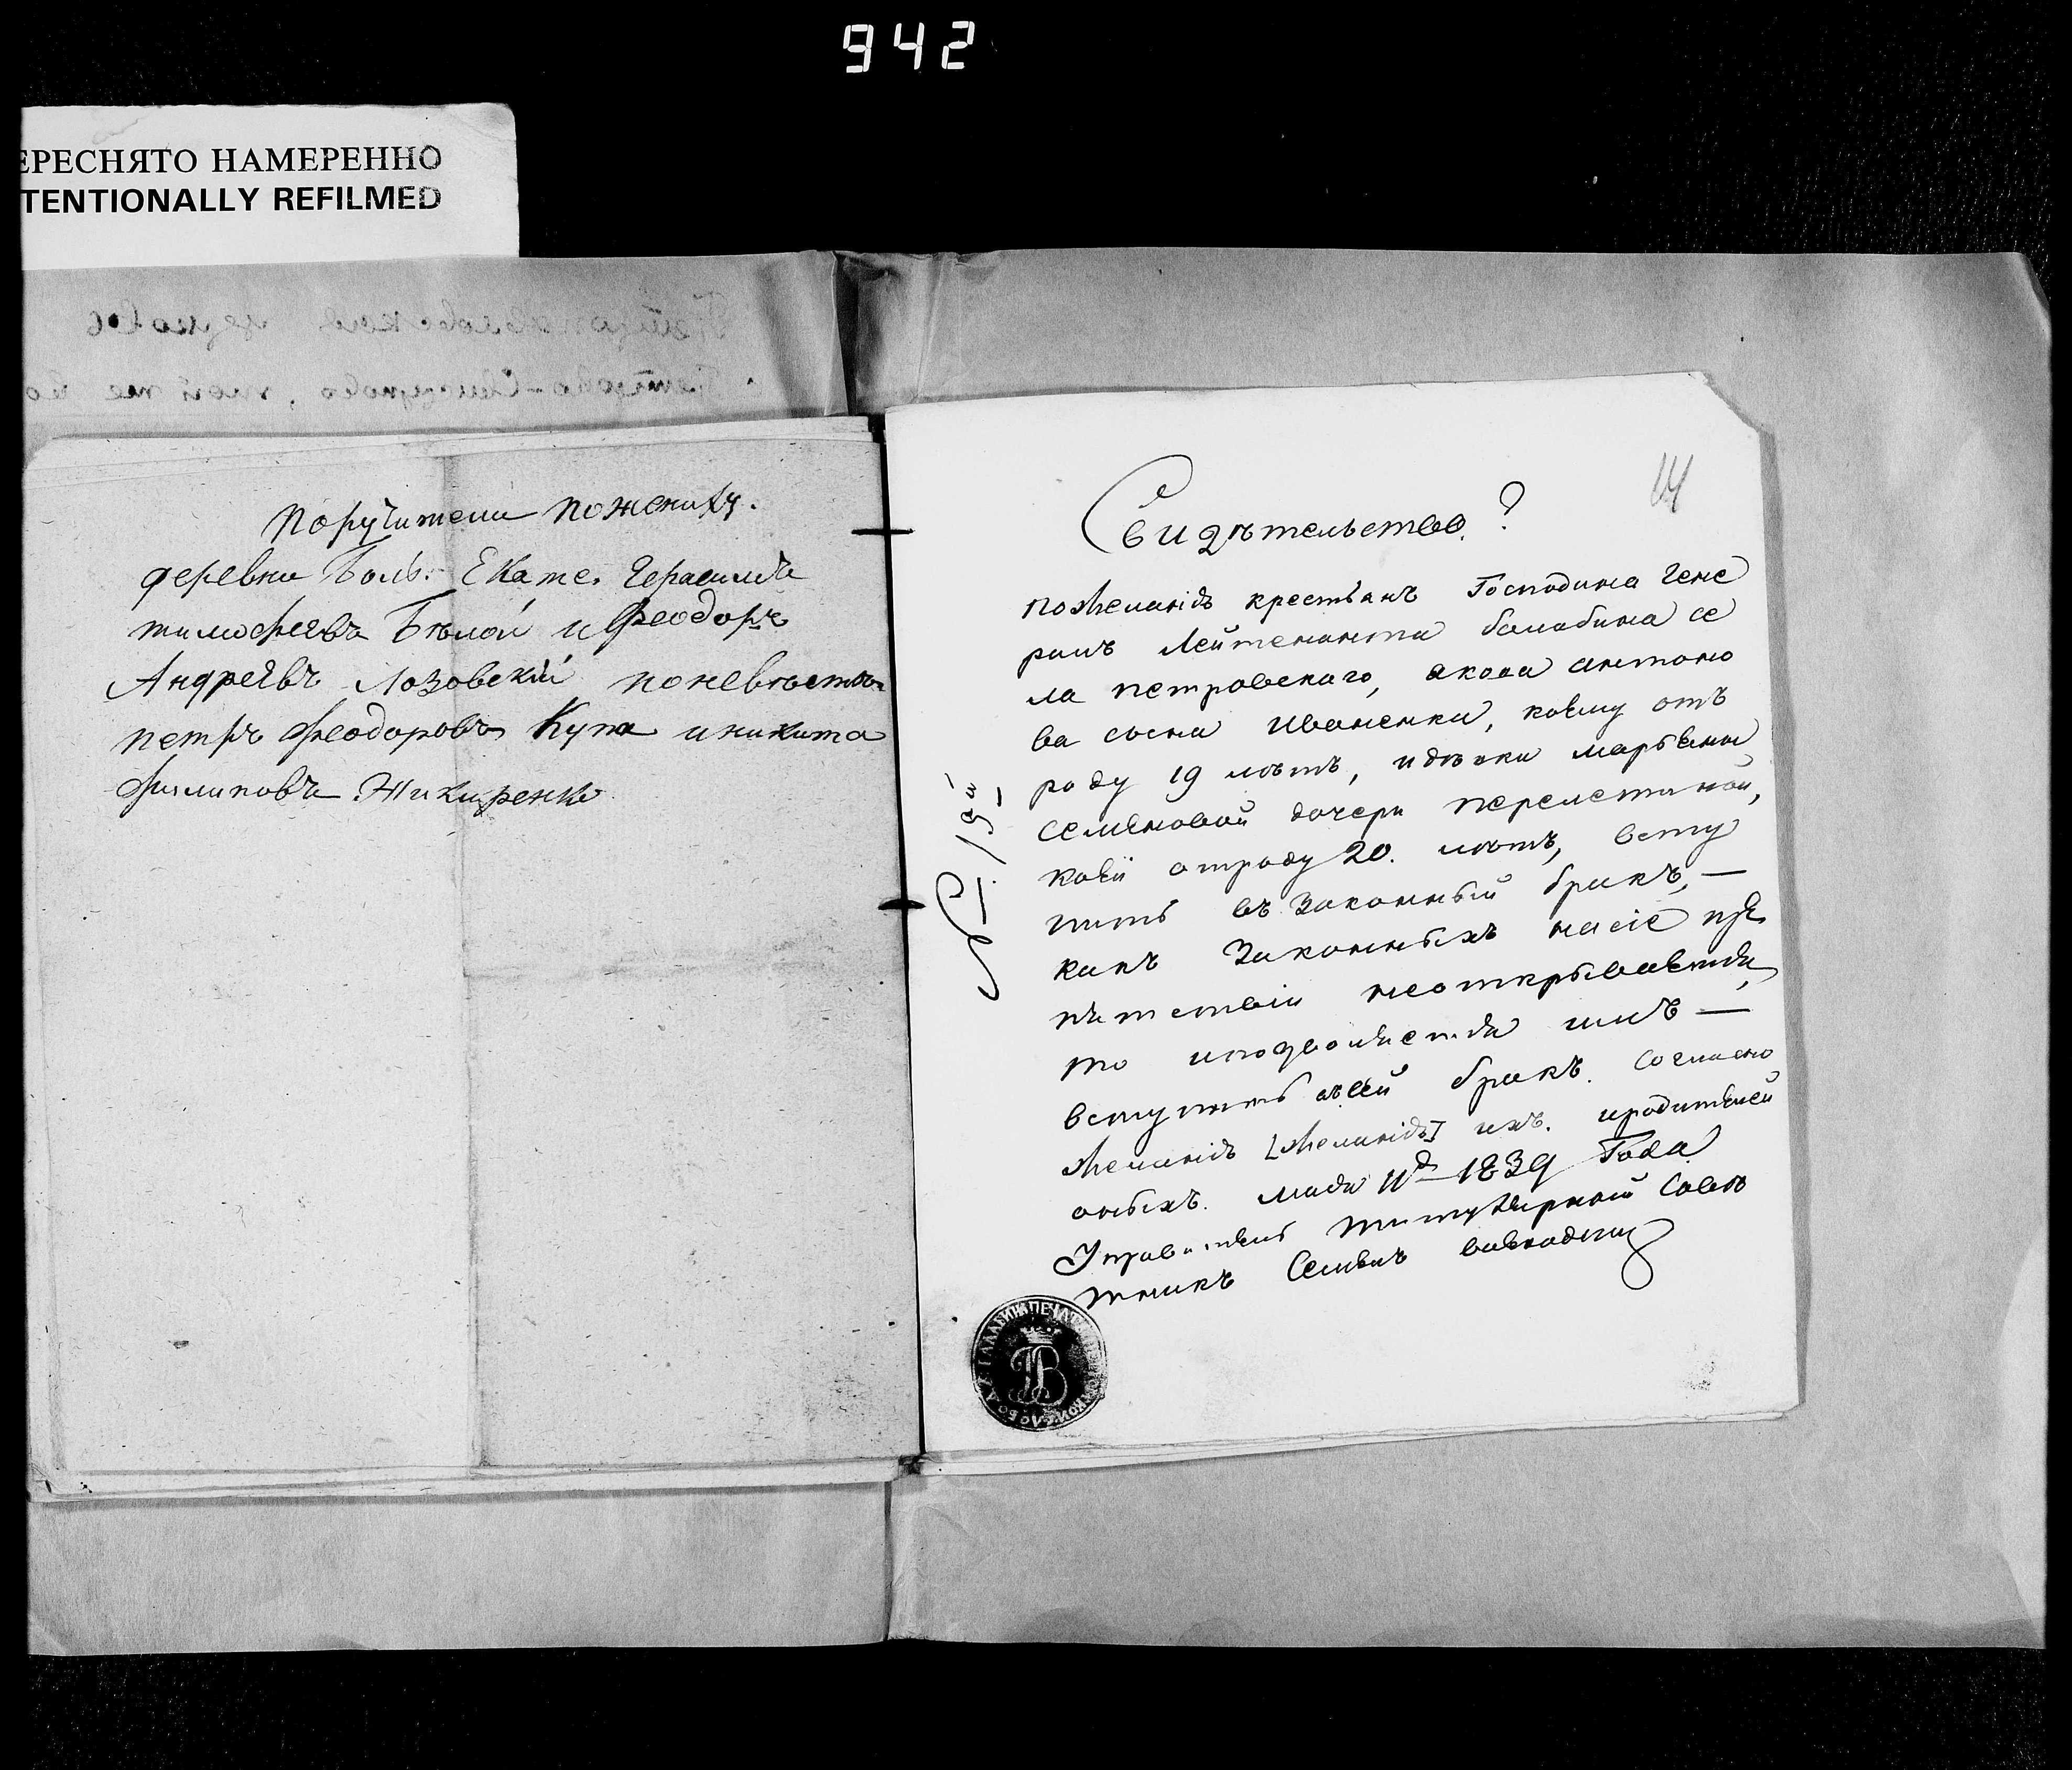 942
ЕРЕСНЯТО НАМЕРЕННО
TENTIONALLY REFILMED
Поручители пожениху.
деревни Боль: Екате. Герасимъ
тимофѣевъ Бѣлой и Феодоръ
Андрѣевъ Лозовскій поневѣстѣ
петръ феодоровъ Купа иникита
филиповъ Жикиренко
14
Свидѣтельство.
пожеланію крестьянъ Господина Гене
ралъ Лейтенанта балабина се
ла петровскаго, якова антоно
ва сына Иваненки, коему отъ
роду 19 лѣтъ, идѣвки марьяны
семеновой дочери перелетиной,
коей отроду 20. лѣтъ, всту
пить въ Законный бракъ, —
какъ Законныхъ насіе пре
пятствіи неоткрывается,
то ипозволяется имъ —
вступить въ сей бракъ. согласно
желанію [желанію] ихъ. иродителей
оныхъ. маія 11д 1839 Года
Управитель титулярной Совѣ
тникъ Семенъ
№ 19й